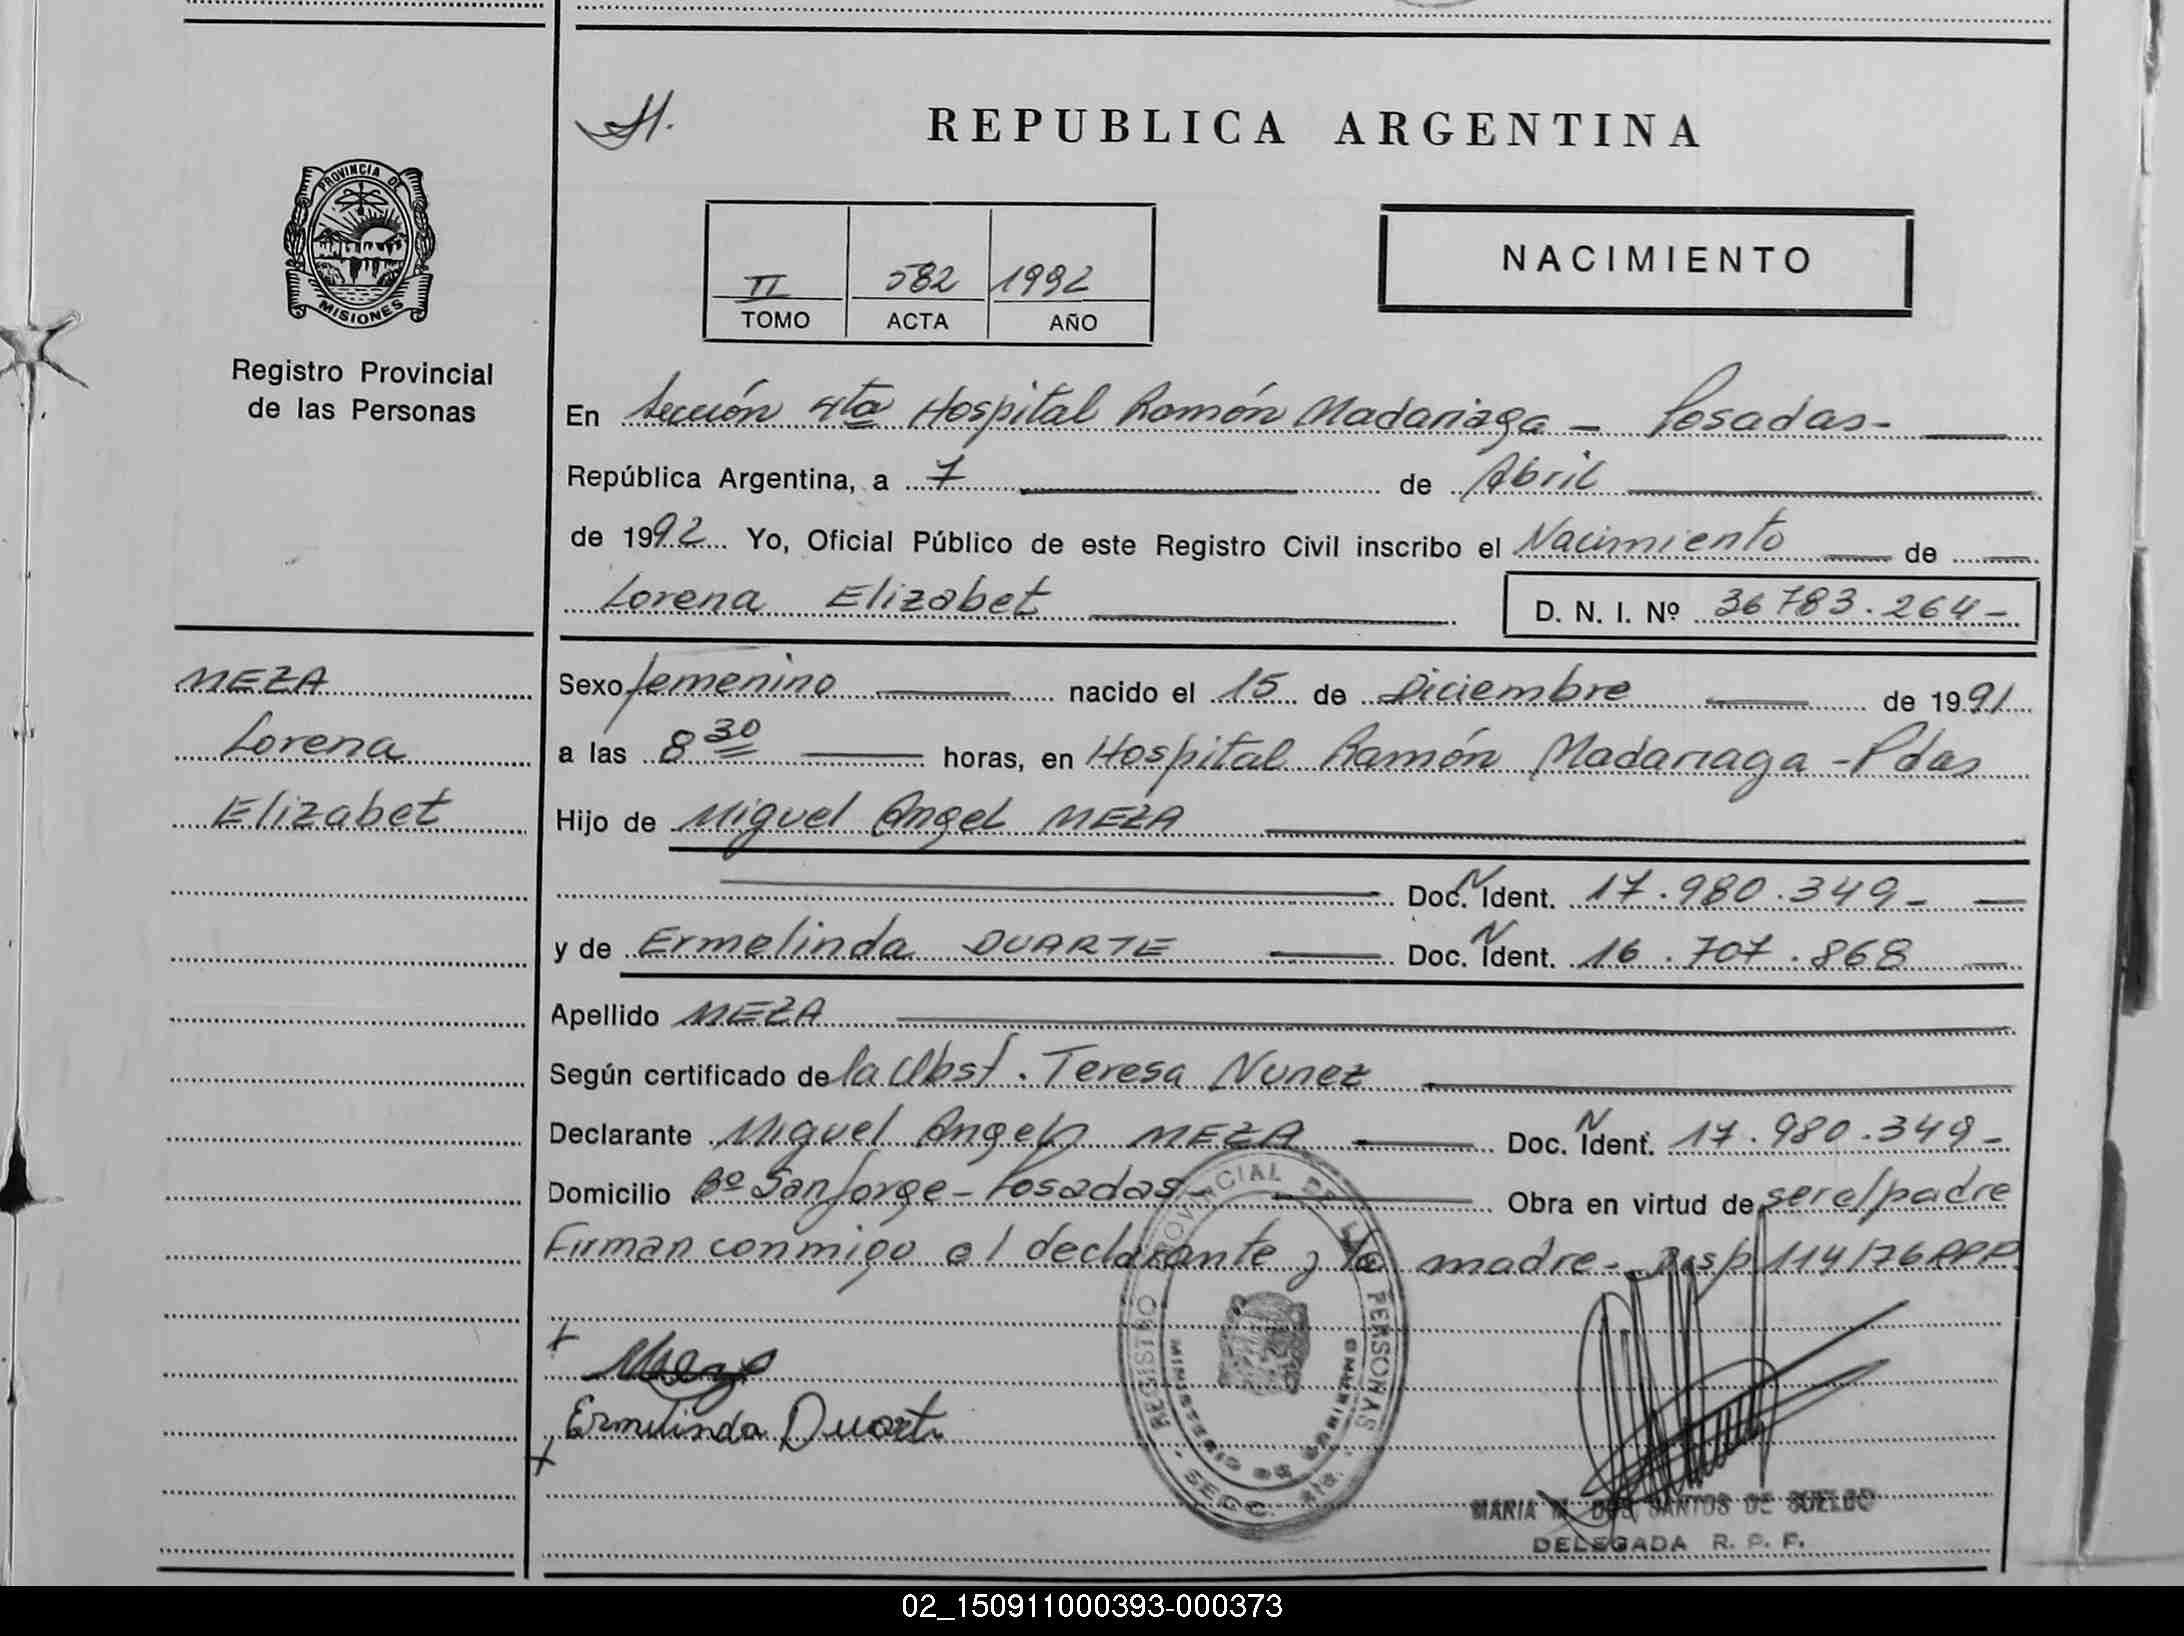 REPUBLICA ARGENTINA
PROVINCIA DE
MISIONES
Registro Provincial
de las Personas
II 582 1992
TOMO ACTA AÑO
NACIMIENTO
En Sección 4ta Hospital Ramón Madariaga - Posadas-
República Argentina, a 7 de Abril
de 1992 Yo, Oficial Público de este Registro Civil inscribo el Nacimiento de
Lorena Elizabet D. N. I. Nº 36783.264-
MEZA
Lorena
Elizabet
Sexo femenino nacido el 15 de Diciembre de 1991
a las 8 30 horas, en Hospital Ramón Madariaga - Pdas
Hijo de Miguel Angel MEZA
Doc. N Ident. 17.980.349-
y de Ermelinda DUARTE Doc. N Ident. 16.707.868
Apellido MEZA
Según certificado de la Obst. Teresa Nunez
Declarante Miguel Angel MEZA Doc. N Ident. 17.980.349-
Domicilio Bº San Jorge - Posadas- Obra en virtud de ser el padre
Firman conmigo el declarante y la madre- Disp 114/76 RPP
REGISTRO PROVINCIAL DE LAS PERSONAS
MINISTERIO DE GOBIERNO
Meza
Ermelinda Duarte
MARIA M. DOS SANTOS DE
DELEGADA R. P. P.
02_150911000393-000373